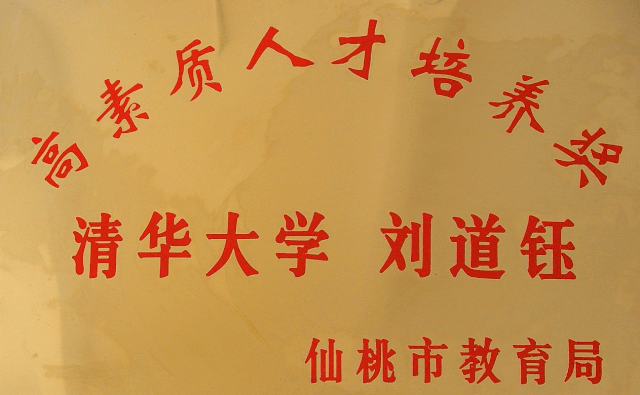 高素质人才培养奖
清华大学 刘道钰
仙桃市教育局